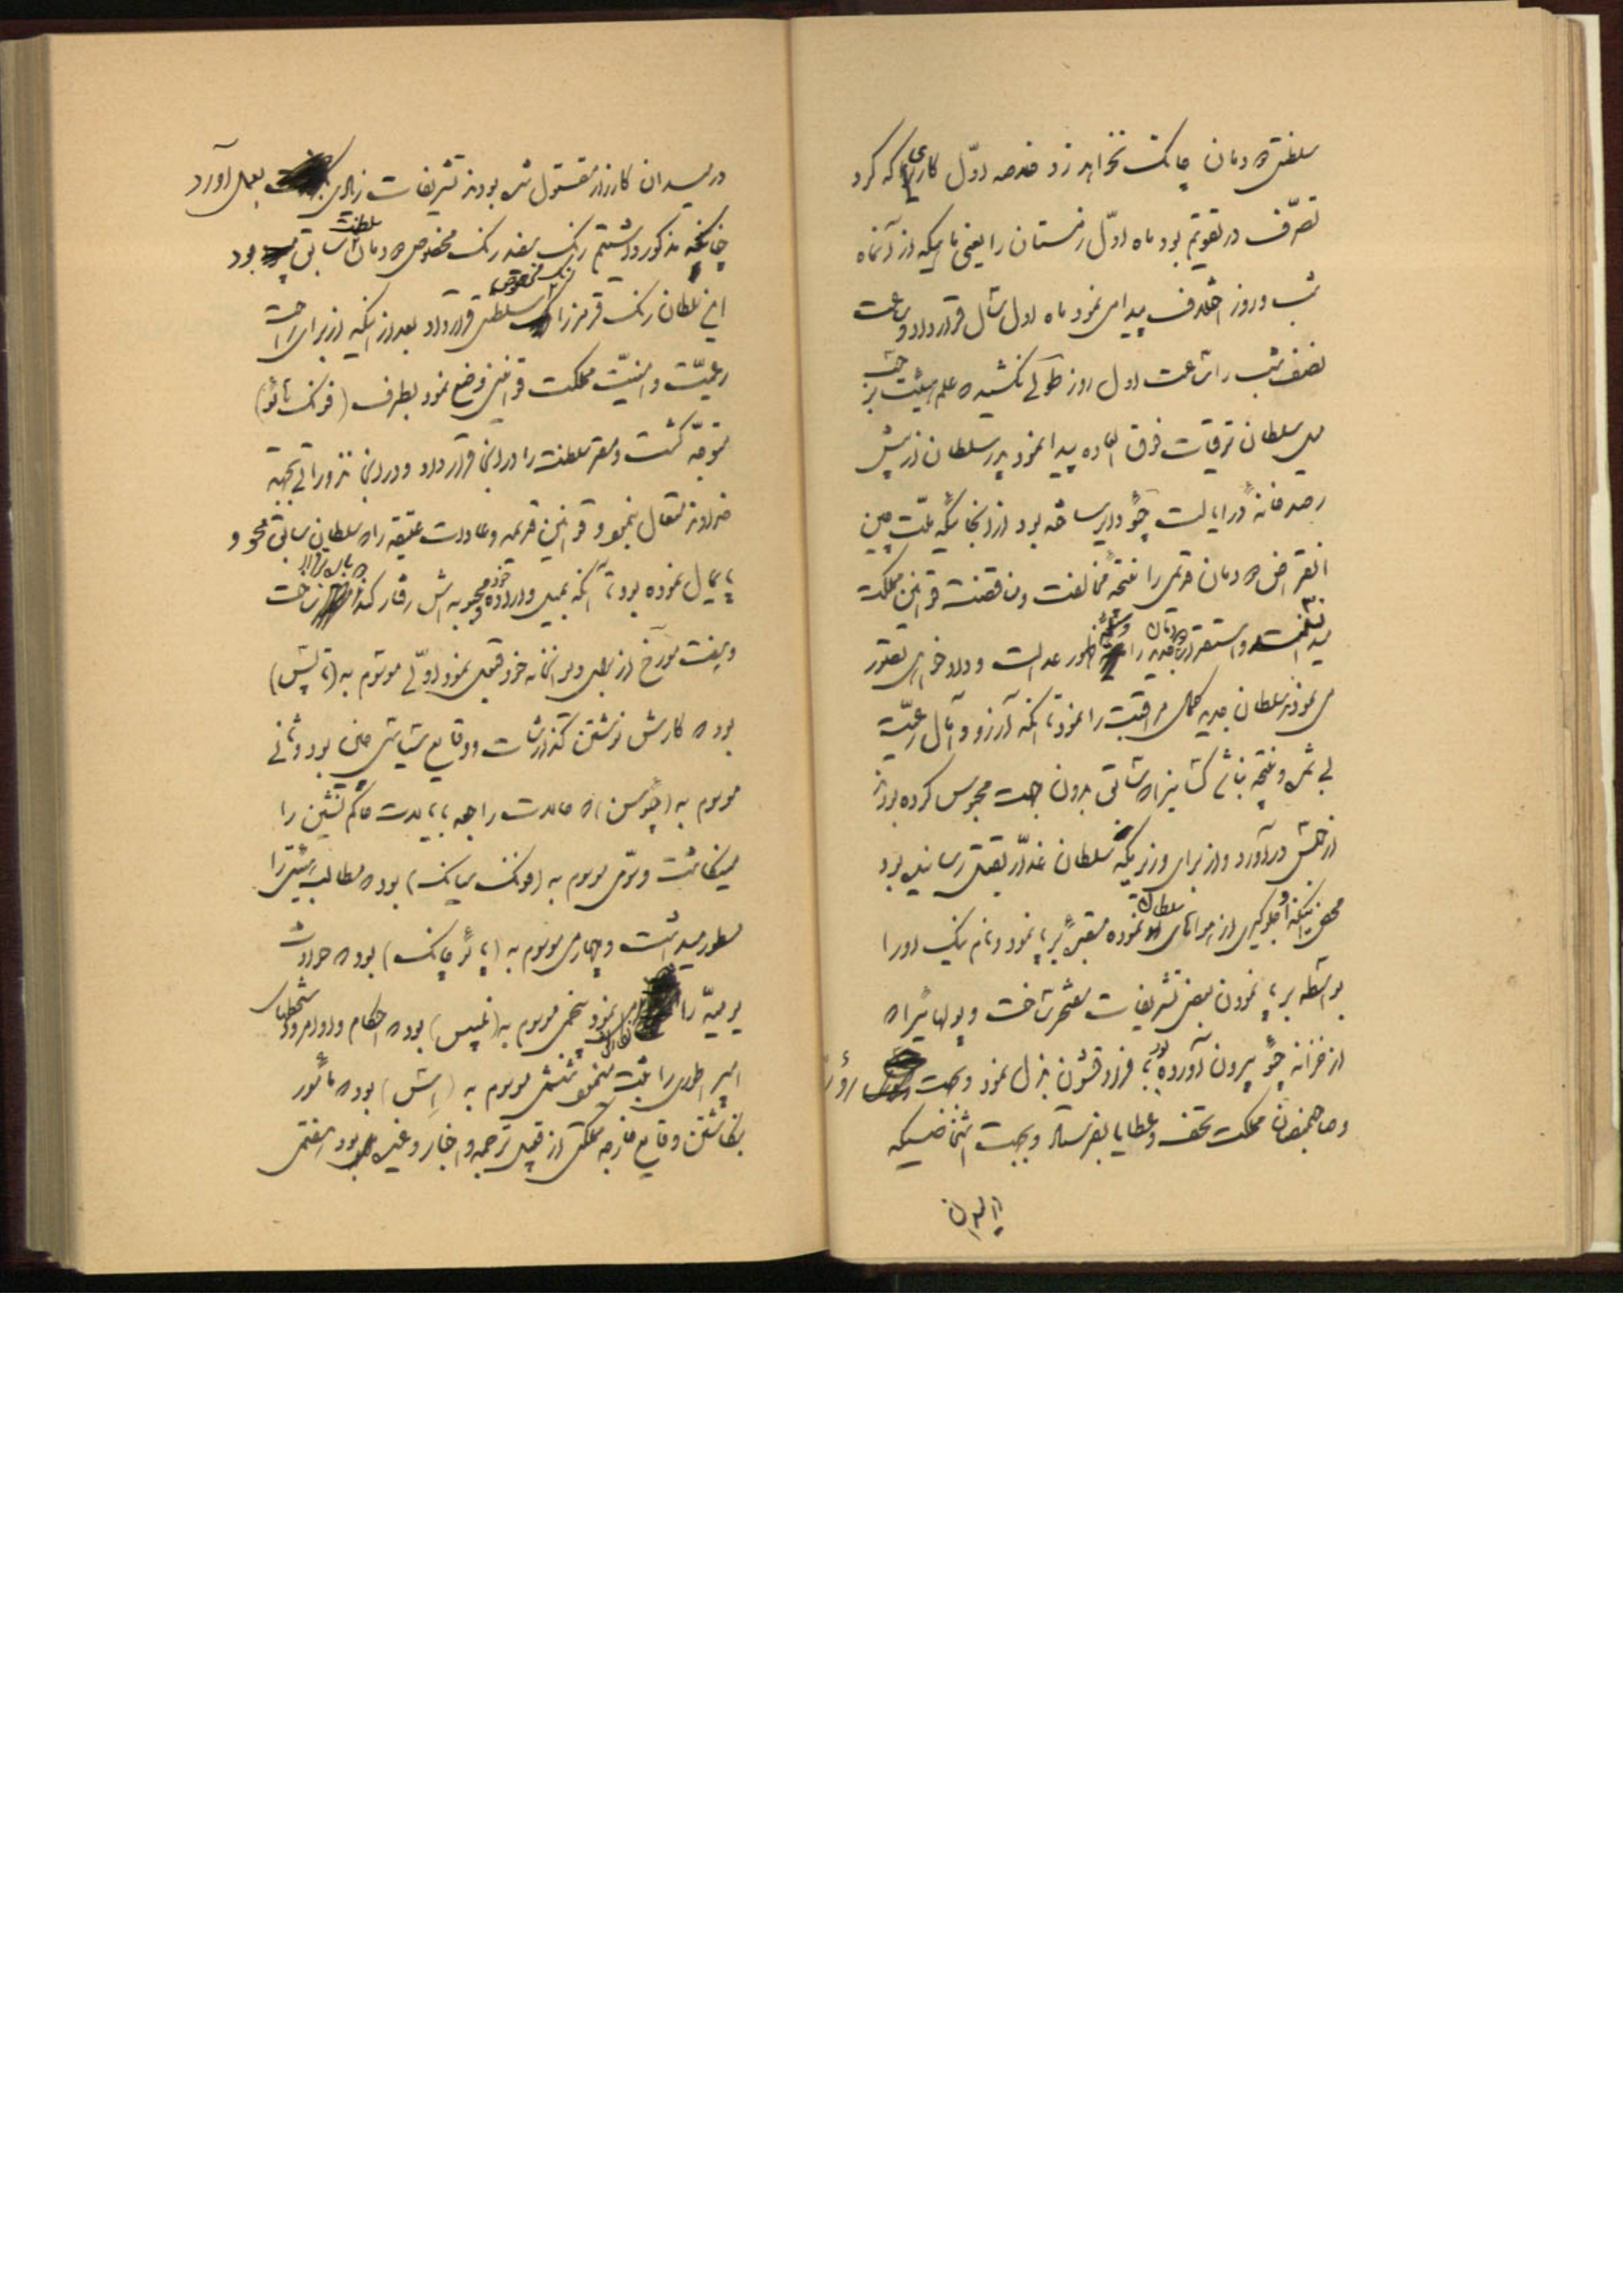 سلطنتی دودمان چانک نخواهد زد خلاصه اوّل کاری که کرد
تصرّف در تقویم بود ماه اوّل زمستان را یعنی ماهیکه از آنماه
شب و روز اختلاف پیدا می نمود ماه اول سال قرار داد و ساعت
نصف شب را ساعت اول روز طولی نکشید که علم هیئت بر حسب
میل سلطان ترقیات فوق العاده پیدا نمود پدر سلطان از پیش
رصدخانهٔ در ایالت چُو دایر ساخته بود از آنجائیکه ملّت چین
انقراض دودمان قدیمی را نتیجهٔ مخالفت و مناقضت قوانین مملکت
میدانست و استقرار دودمان جدید را وسیلهٔ ظهور عدالت و دادخواهی تصور
می نمودند سلطان جدید کمال مراقبت را نمود تا آنکه آرزو و آمال رعیّت
بی ثمر و نتیجه نباشد کسانیرا که سابق بدون جهت محبوس کرده بودند
از حبس درآورد و از برای وزیریکه سلطان غدّار بقتل رسانیده بود
محض اینکه او جلوگیری از هوای سلطان نموده مقبرهٔ برپا نمود و نام نیک او را
بواسطه برپا نمودن بعض تشریفات مفتخر ساخت و پولهائیرا که
از خزانه چُو بیرون آورده بود بافراد قشون بذل نمود و بجهت رؤسا
و صاحبمنصبان مملکت تحف و عطایا بفرستاد و بجهت اشخاصیکه
در میدان
در میدان کارزار مقتول شده بودند تشریفات زیادی بعمل آورد
چنانچه مذکور داشتیم رنگ سفید رنک مخصوص دودمان سلطنت سابق بود
این سلطان رنک قرمز را رنگ مخصوص سلطنتی قرار داد بعد از اینکه از برای راحت
رعیّت و امنیّت مملکت قوانینی وضع نمود بطرف (فونک تائو)
متوجّه گشت و مقر سلطنت را در آنجا قرار داد و در آنجا نذوراتی بجهة
خداوند متعال بنمود و قوانین قدیمه و عادات عتیقه را که سلطان سابق محو و
پایمال نموده بود تا آنکه بمیل و اراده خود و محبوبه اش رفتار کند دوباره برقرار ساخت
و هفت مورّخ از برای دیوانخانه خود قبول نمود اوّلی موسوم به (تاپش)
بود که کارش نوشتن گذارشات و وقایع سیاسی چین بود و ثانی
موسوم به (چوسن) که حالات راجعه بایالات حاکم نشین را
مینگاشت و سوّمی موسوم به (فونک سیانک) بود که مطالب سایرین را
مسطور میداشت و چهارمی موسوم به (تائو چانک) بود که حوادث
یومیّه را نگارش می نمود پنجمی موسوم به (نمیس) بود که احکام و اوامر و دستخطهای
امپراطوری را ثبت مینمود ششمی موسوم به (اِسَش) بود که مأمور
نگاشتن وقایع خارجه مملکتی از قبیل ترجمه و اخبار و غیره بود هفتمی